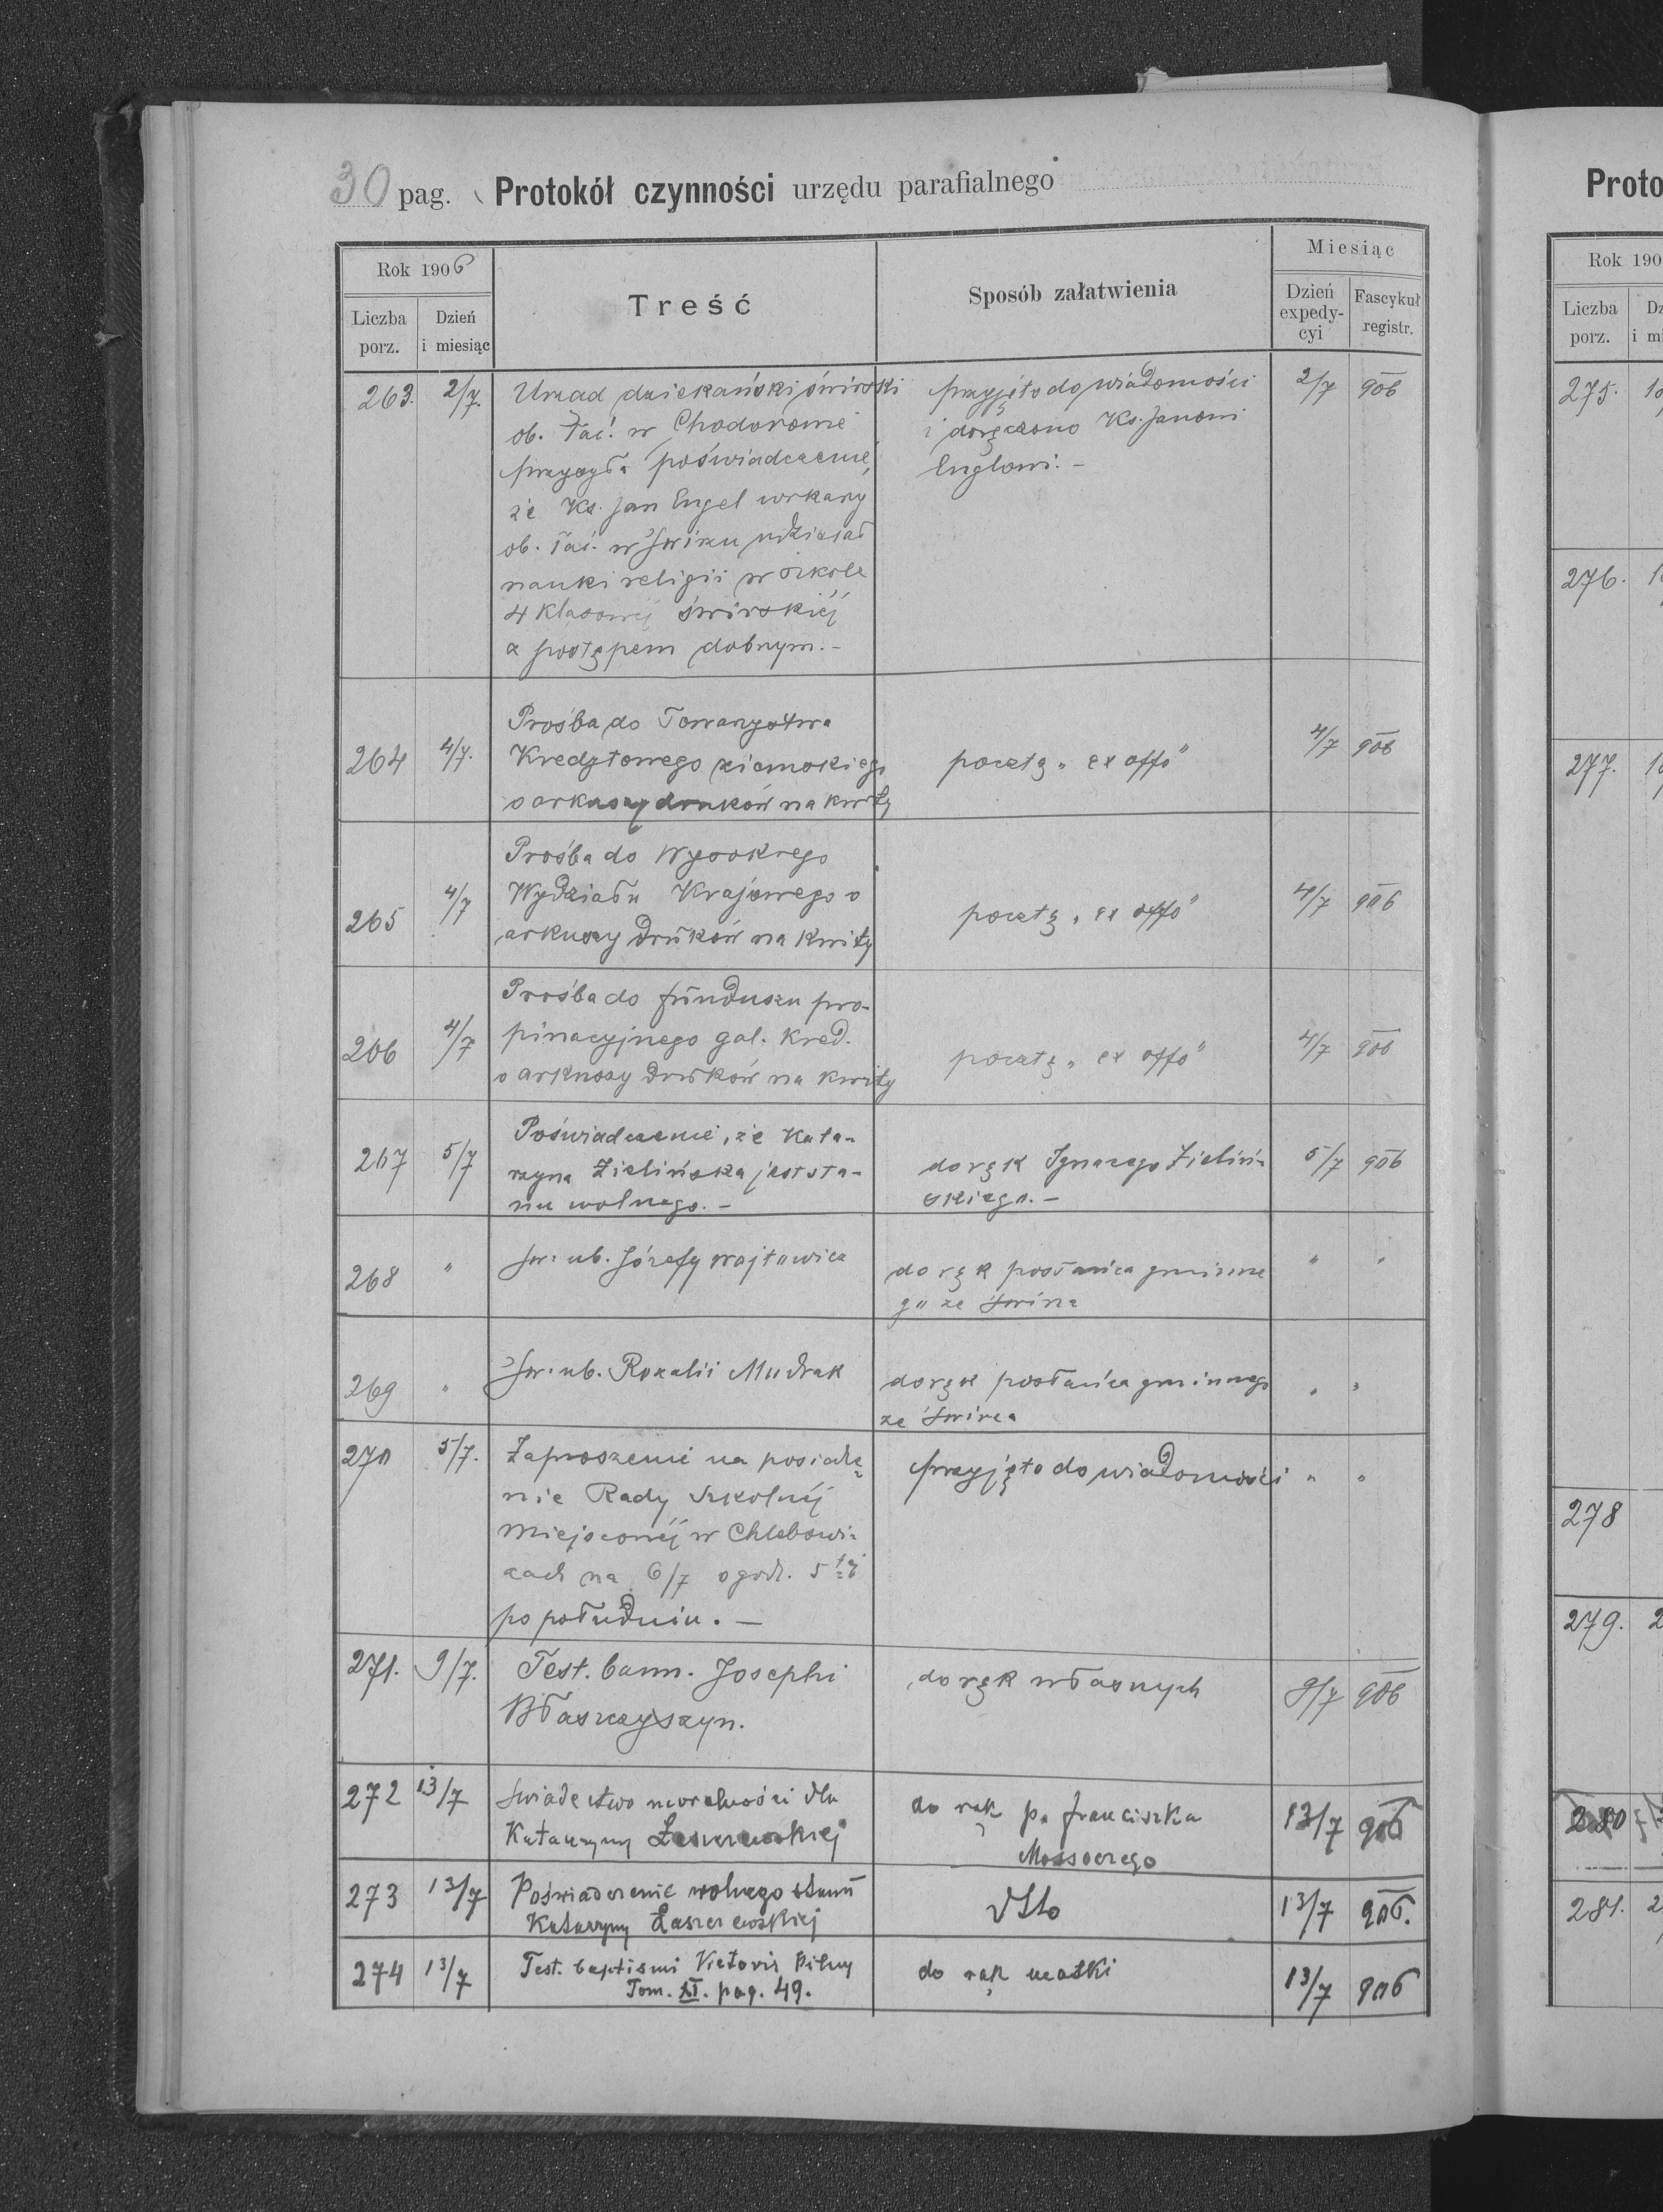 30 pag. Protokół czynności urzędu parafialnego
Rok 1906
Liczba porz.
Dzień i miesiąc
Treść
Sposób załatwienia
Miesiąc
Dzień expedycyi
Fascykuł registr.
263. 2/7. Urząd dziekański świrski przyjęto do wiadomości 2/7 906
ob. łać. w Chodorowie i doręczono Ks. Janowi
przysyła poświadczenie, Englowi. –
że Ks. Jan Engel wikary
ob. łać. w Świrzu udzielał
nauki religii w szkole
4 klasowéj świrskiéj
z postępem dobrym. –
Prośba do Towarzystwa
264 4/7. Kredytowego ziemskiego pocztą „ex offo" 4/7 906
o arkuszy druków na kwity
Prośba do Wysokiego
265 4/7 Wydziału Krajowego o pocztą „ex offo" 4/7 906
arkuszy druków na kwity
Prośba do funduszu pro-
266 4/7 pinacyjnego gal. Kred. pocztą „ex offo" 4/7 906
o arkuszy druków na kwity
Poświadczenie, że Kata-
267 5/7 rzyna Zielińska jest sta- do rąk Ignacego Zieliń- 5/7 906
nu wolnego. – skiego. –
268 " Św. ub. Józefy Wojtowicz do rąk posłańca gminne " "
go ze Świrza
269 " Św. ub. Rozalii Mudrak do rąk posłańca gminnego " "
ze Świrza
270 5/7. Zaproszenie na posiedze przyjęto do wiadomości " "
nie Rady szkolnéj
miejscowéj w Chlebowi-
cach na 6/7 o godz. 5téj
po południu. –
271. 9/7. Test. bann. Josephi do rąk własnych 9/7 906
Błaszczyszyn.
272 13/7 Świadectwo moralności dla do rąk p. Franciszka 13/7 906
Katarzyny
273 13/7 Poświadczenie wolnego stanu dtto 13/7 906.
Katarzyny
274 13/7 Test. baptismi Victoris Pilny do rąk matki 13/7 906
Tom. XI. pag. 49.
Proto
Rok 190
Liczba porz.
Dz
i mi
275.
276.
277.
278
279. 2
280
281. 2